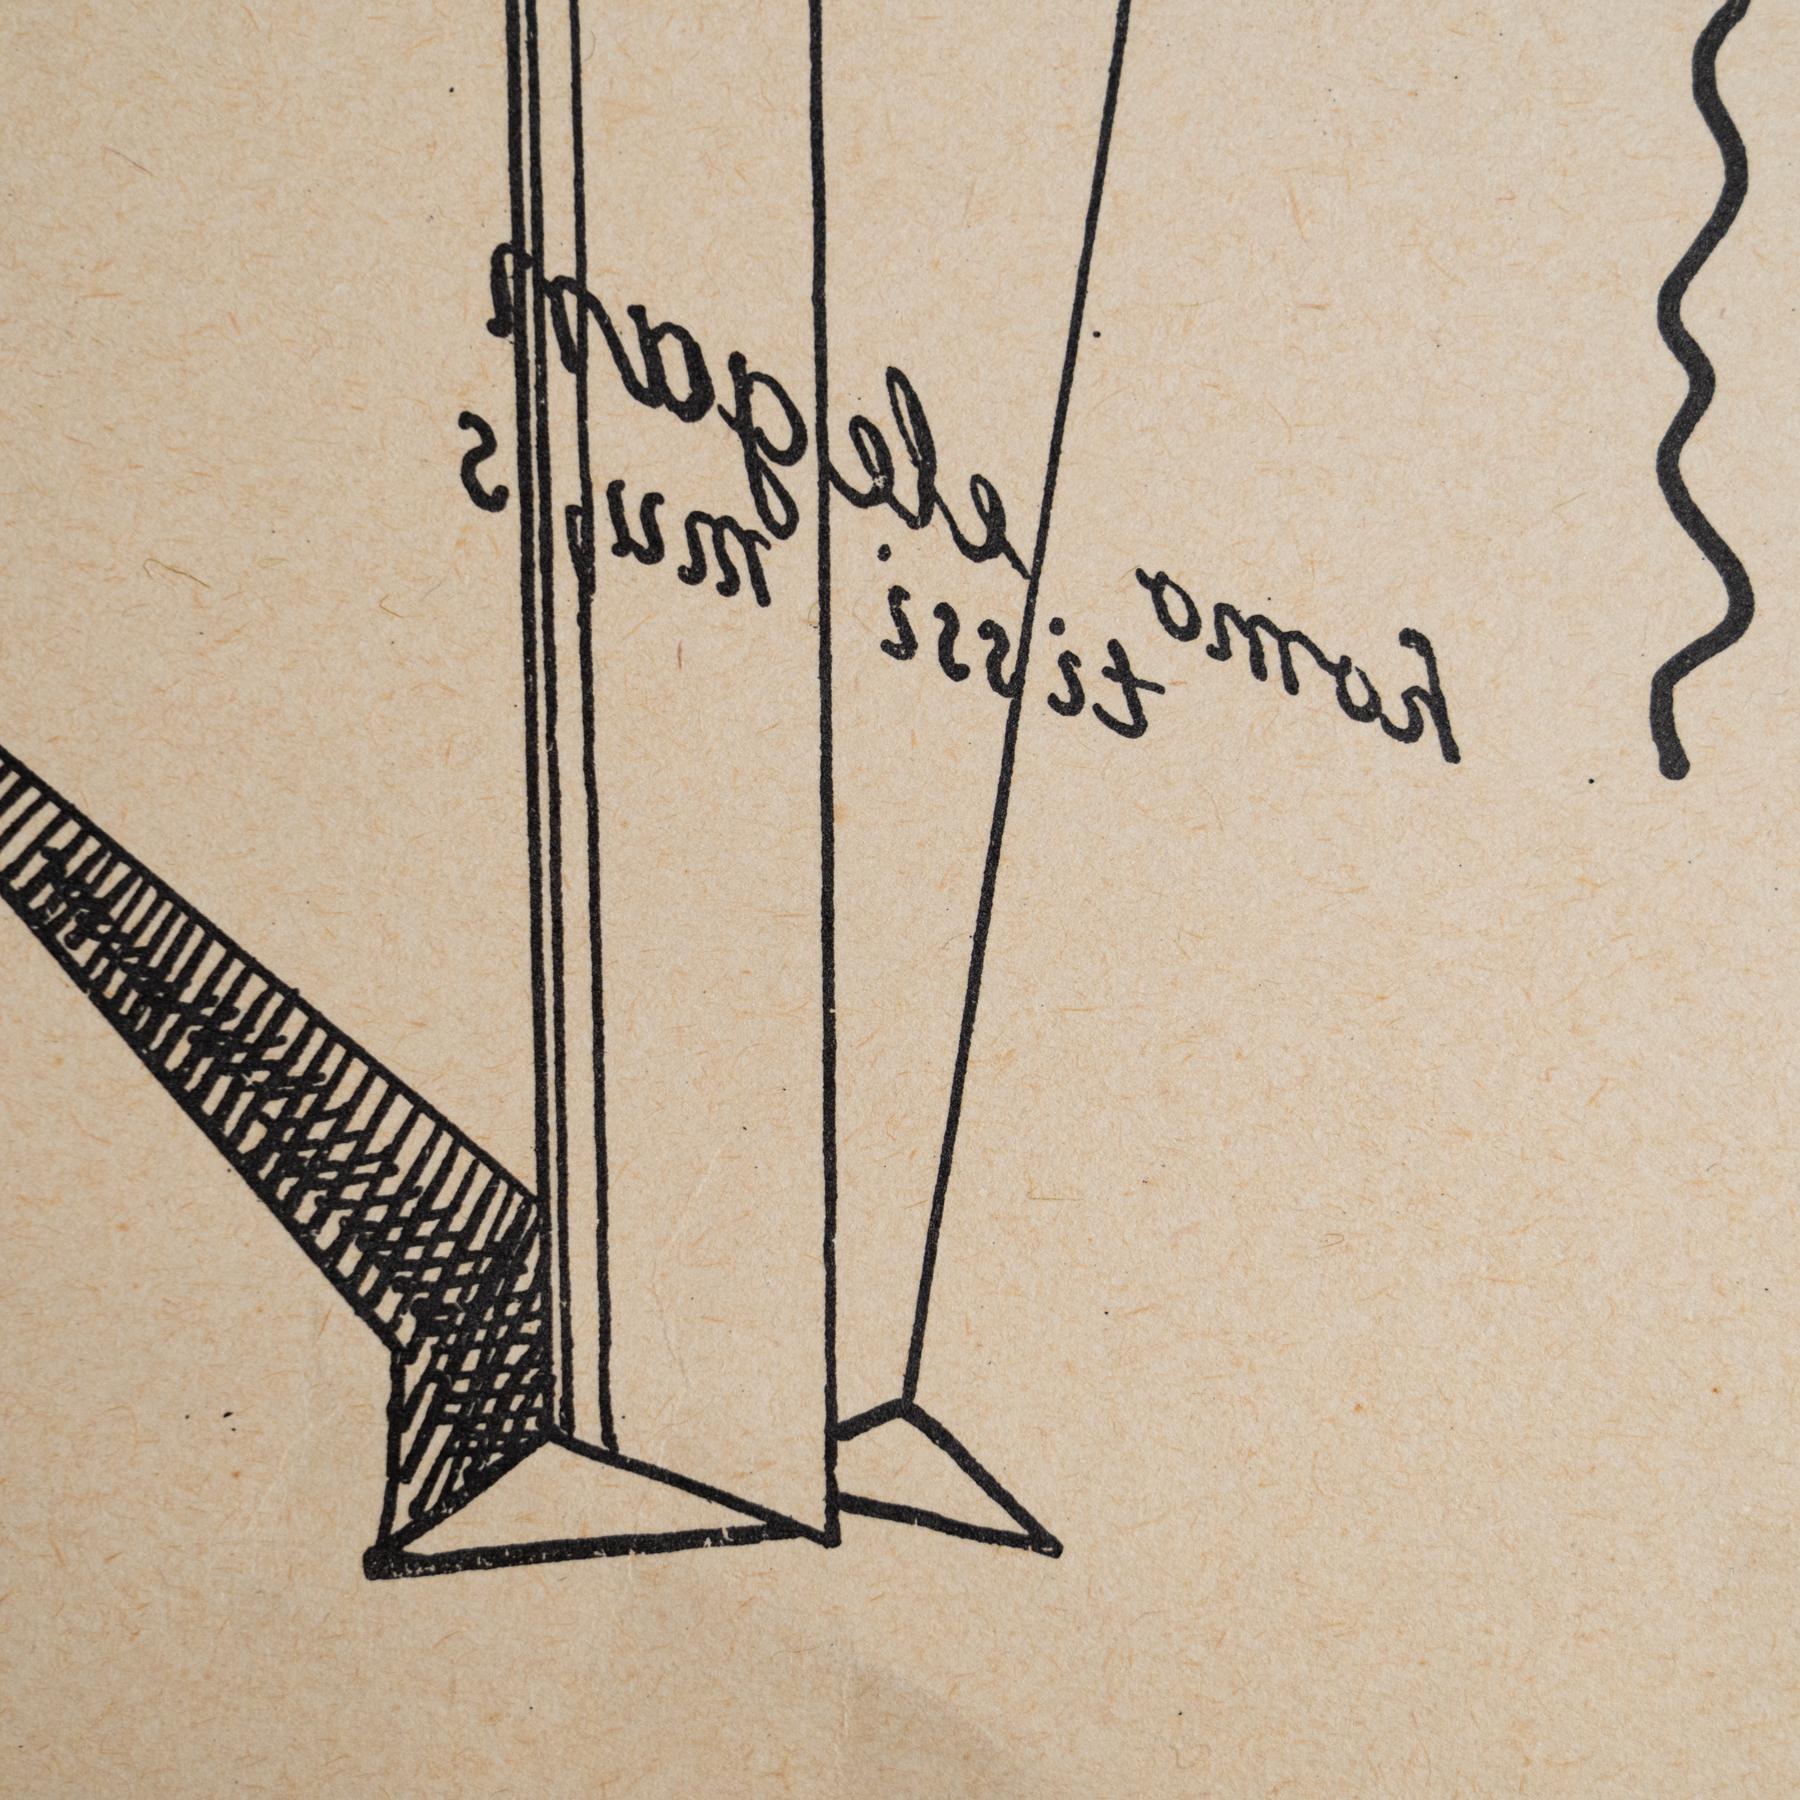 homo elegan
tissimus